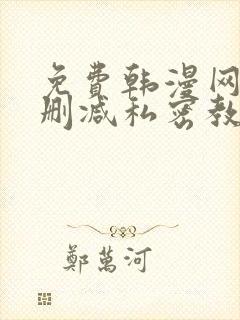 免费韩漫网
删减私密教
鄭萬河